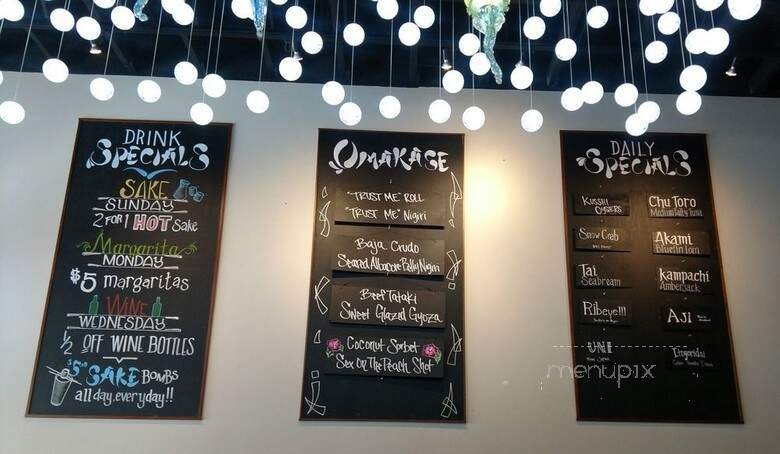 DRINK
SPECIALS
SAKE
SUNDAY
2 FOR 1 HOT Sake
Margarita
MONDAY
$5 margaritas
WINE
WEDNESDAY
1/2 OFF WINE BOTTLES
SAKE BOMBS
all day, everyday!!
OMAKASE
"TRUST ME" ROLL
"TRUST ME" Nigiri
Baja Crudo
Seared Albacore Belly Nigiri
Beef Tataki
Sweet Glazed Gyoza
Coconut Sorbet
Sex On The Peach Shot
DAILY
SPECIALS
KUSSHI
OYSTERS
Snow Crab
Tai
Seabream
Ribeye!!!
UNI
Chu Toro
Medium Fatty Tuna
Akami
Bluefin Loin
Kampachi
Amberjack
AJI
menupix